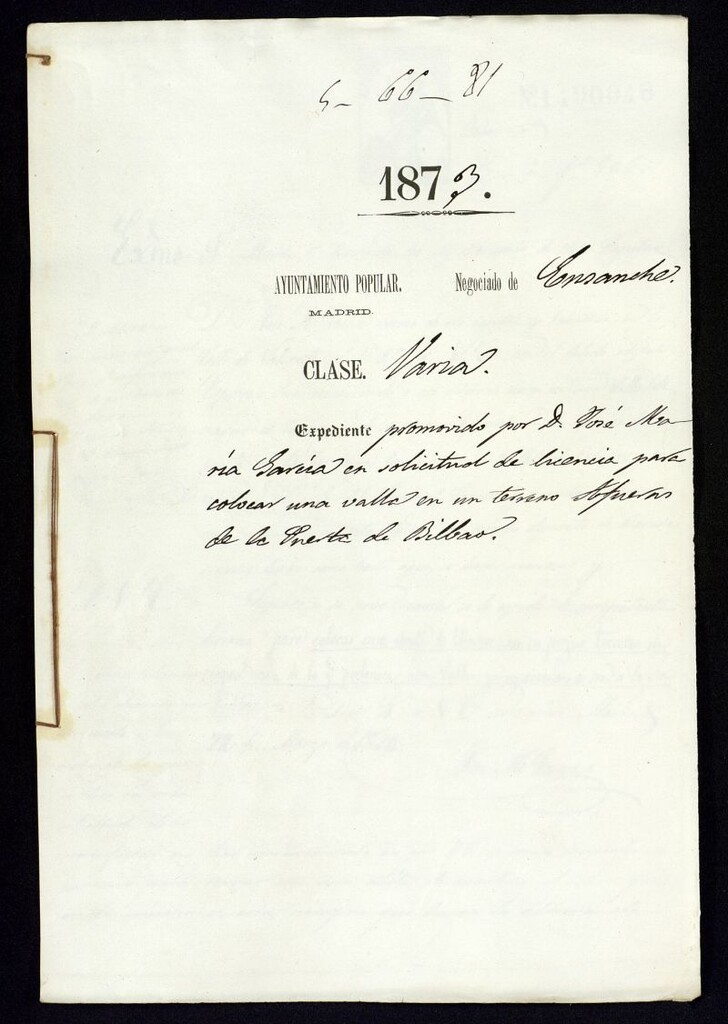 5-66-81
1873.
AYUNTAMIENTO POPULAR. Negociado de Ensanche.
MADRID.
CLASE. Varia.
Expediente promovido por D. José Ma-
ría García en solicitud de licencia para
colocar una valla en un terreno Afueras
de la Puerta de Bilbao.